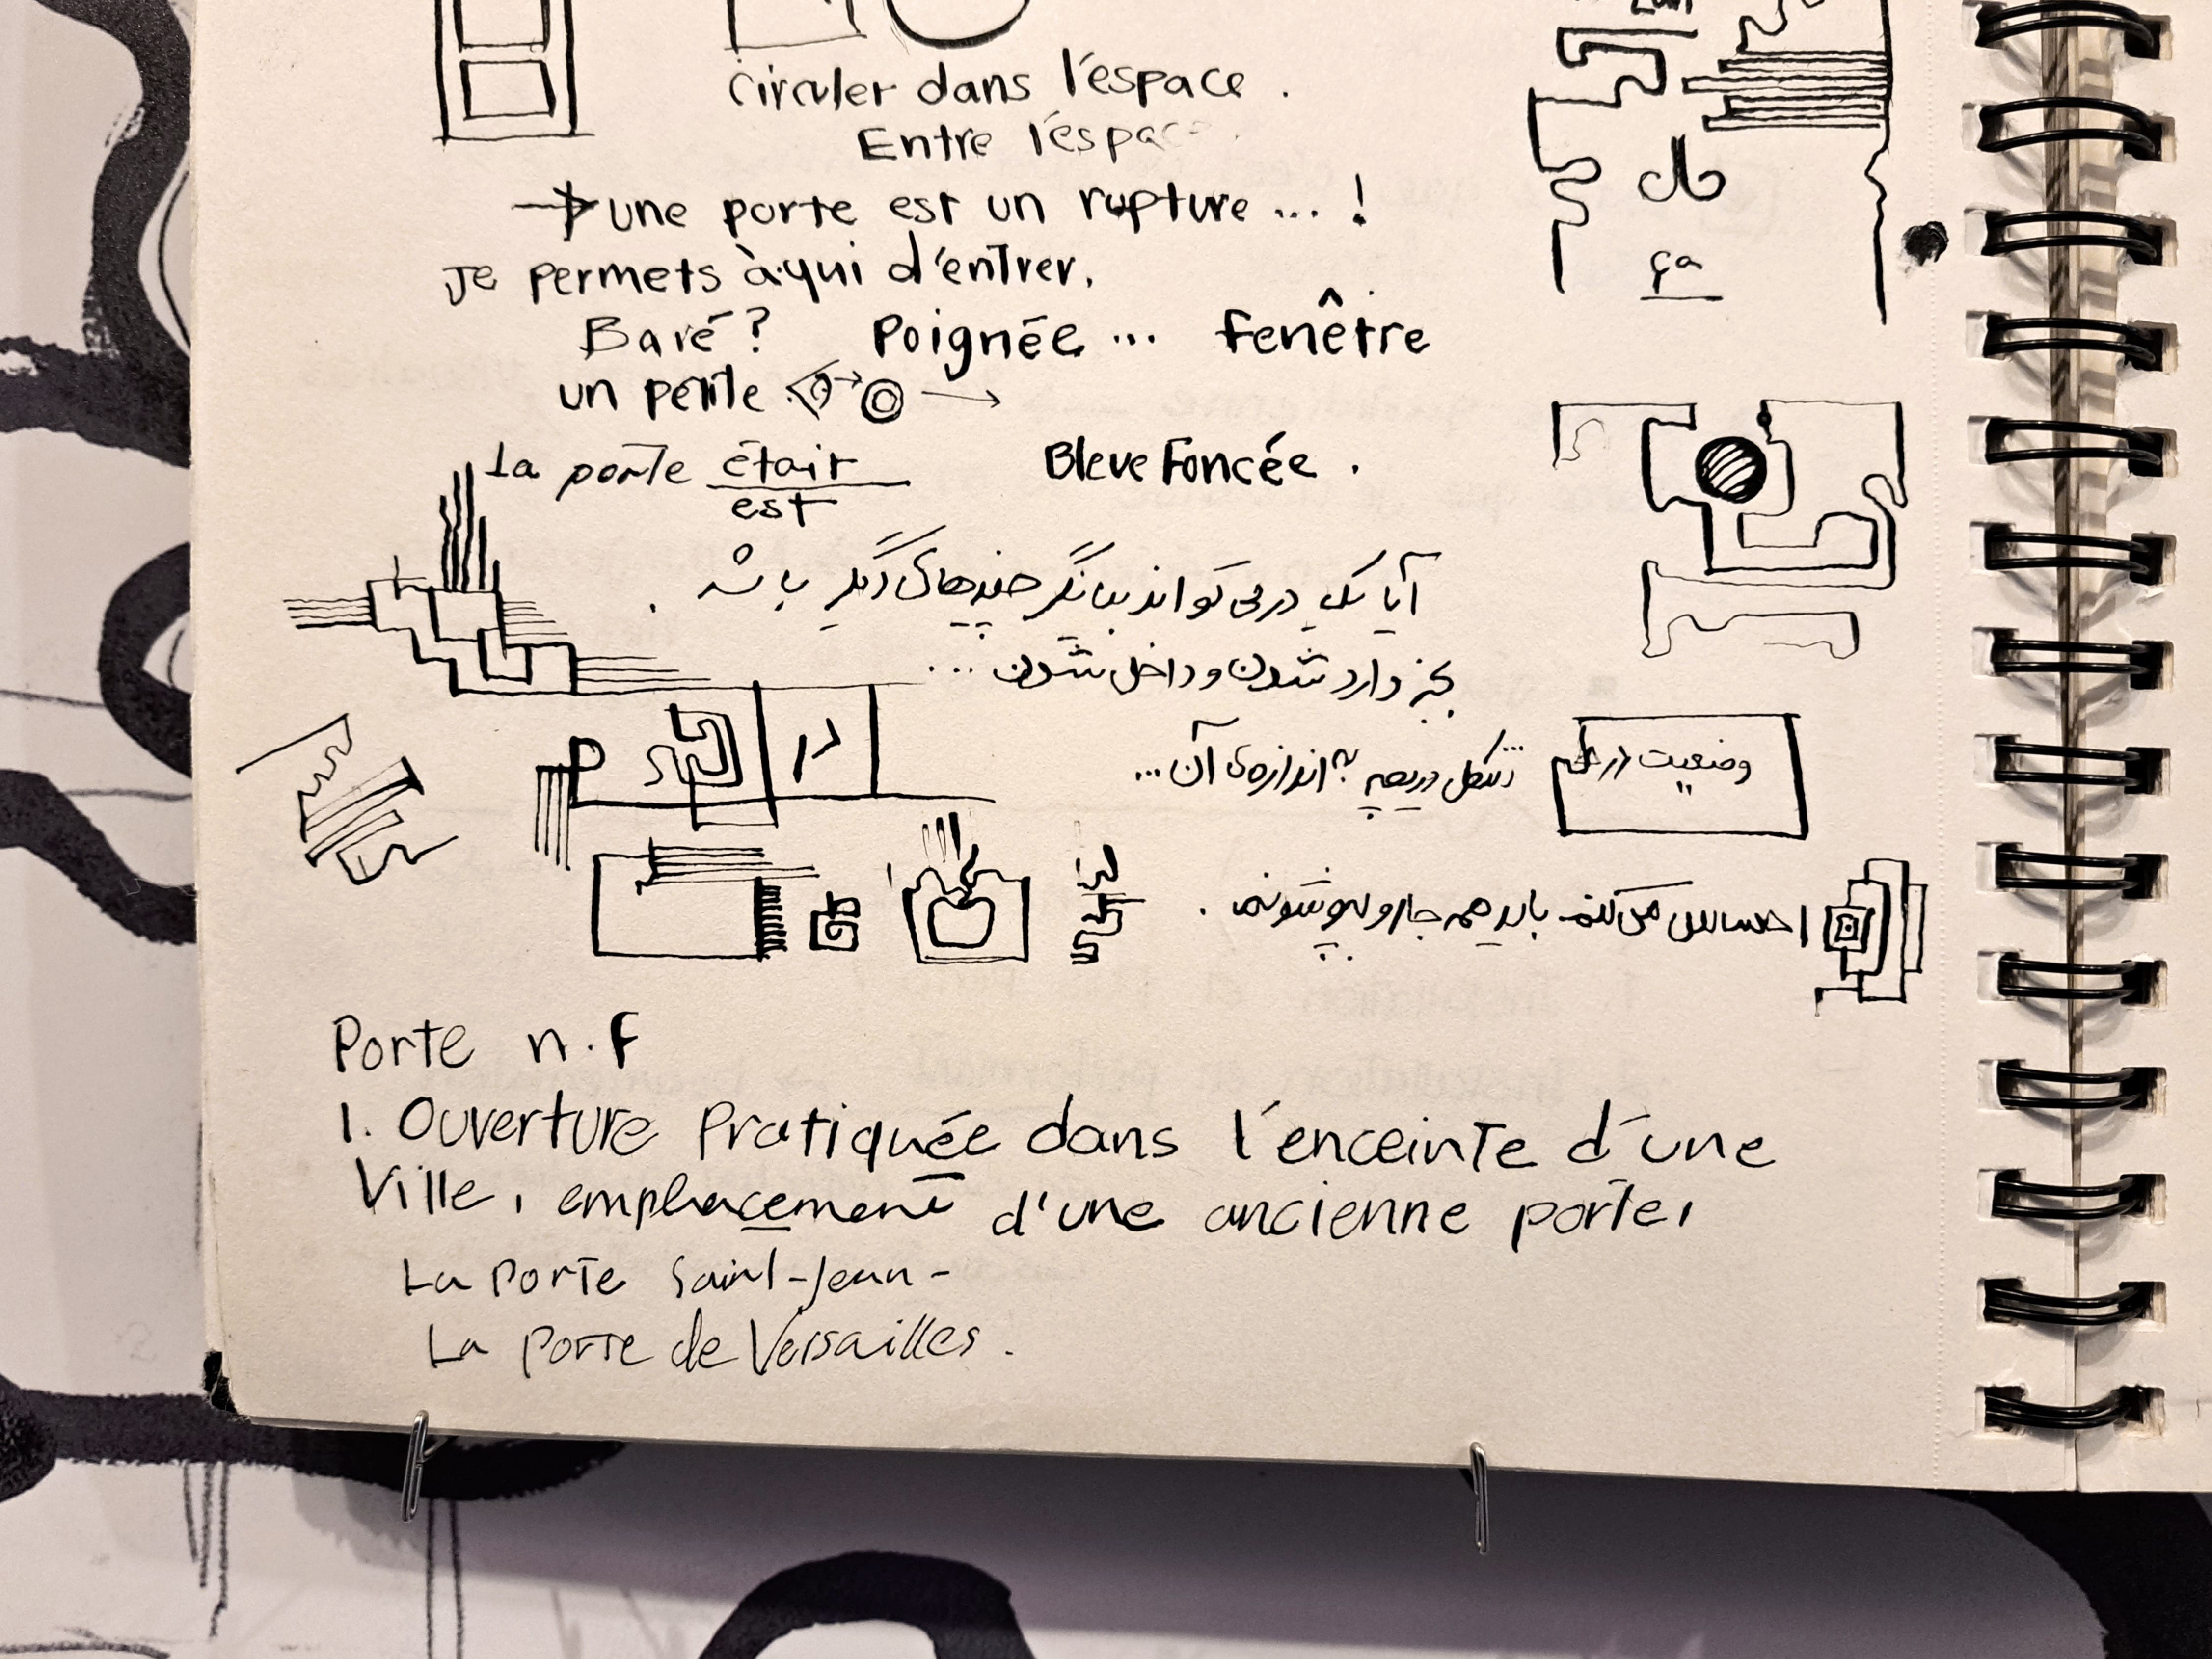 Circuler dans l'espace.
Entre l'espac
une porte est un rupture ... !
Je permets à qui d'entrer.
ça
Baré? Poignée ... Fenêtre
un petite
La porte était
est
Bleue Foncée.
آیا یک در می تواند بیانگر چیزهای دیگر باشد.
بجز وارد شدن و داخل شدن ...
در
وضعیت در
شکل دریچه به اندازه‌ی آن...
احساس می کنم باید همه جا رو بپوشونم.
Porte n.f
1. Ouverture Pratiquée dans l'enceinte d'une
Ville, emplacement d'une ancienne porte,
La Porte Saint-Jean-
La Porte de Versailles.